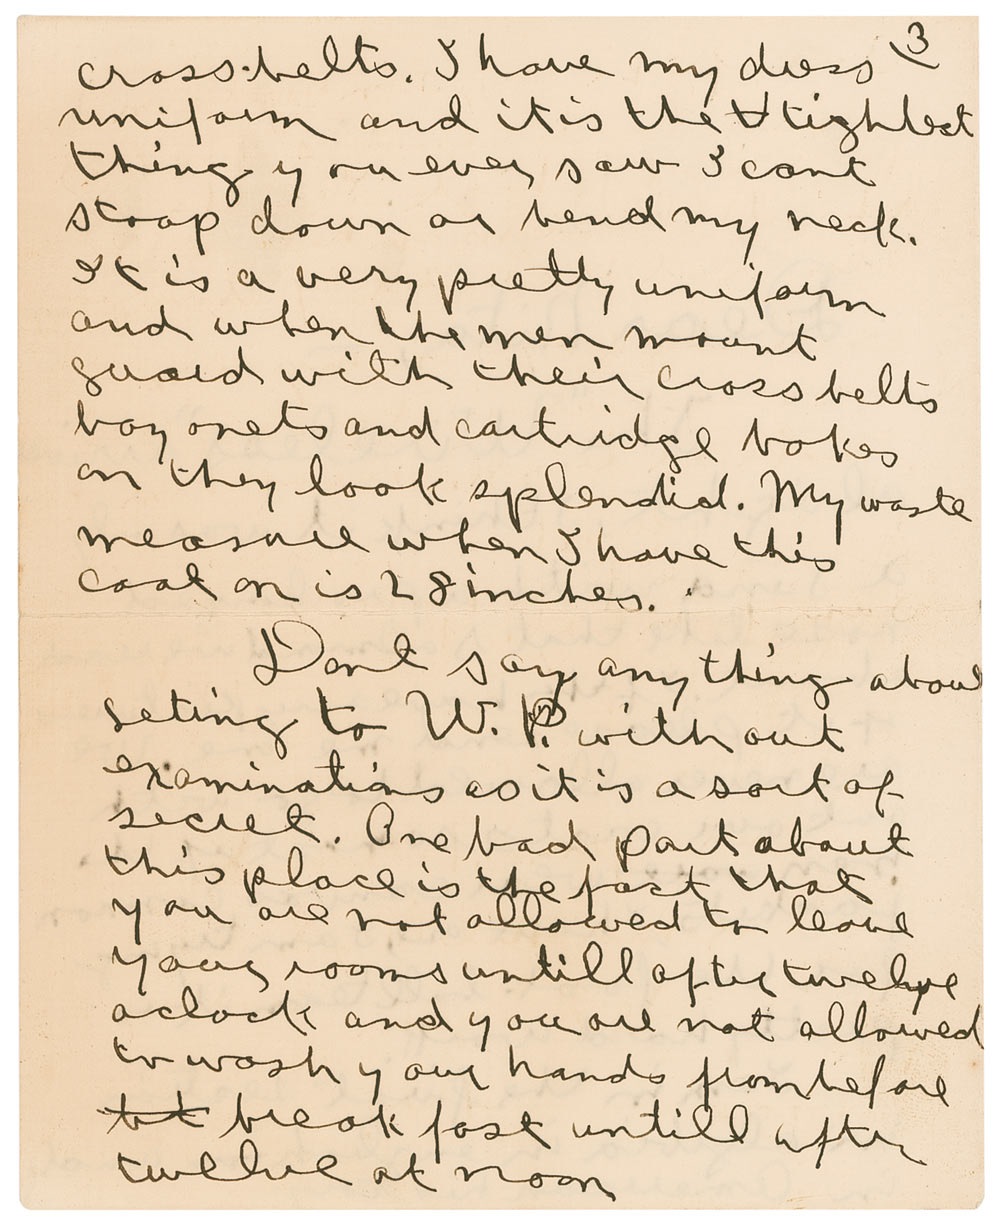 3
cross-belts. I have my dress
uniform and it is the t tightest
thing you ever saw I cant
stoop down or bend my neck.
It is a very pretty uniform
and when the men mount
guard with their cross belts
bayonets and cartridge boxes
on they look splendid. My waste
measure when I have this
coat on is 28 inches.
Dont say any thing about
geting to W. P. without
examinations as it is a sort of
secret. One bad part about
this place is the fact that
you are not allowed to leave
your rooms untill after twelve
oclock and you are not allowed
to wash your hands from before
bt breakfast untill after
twelve at noon